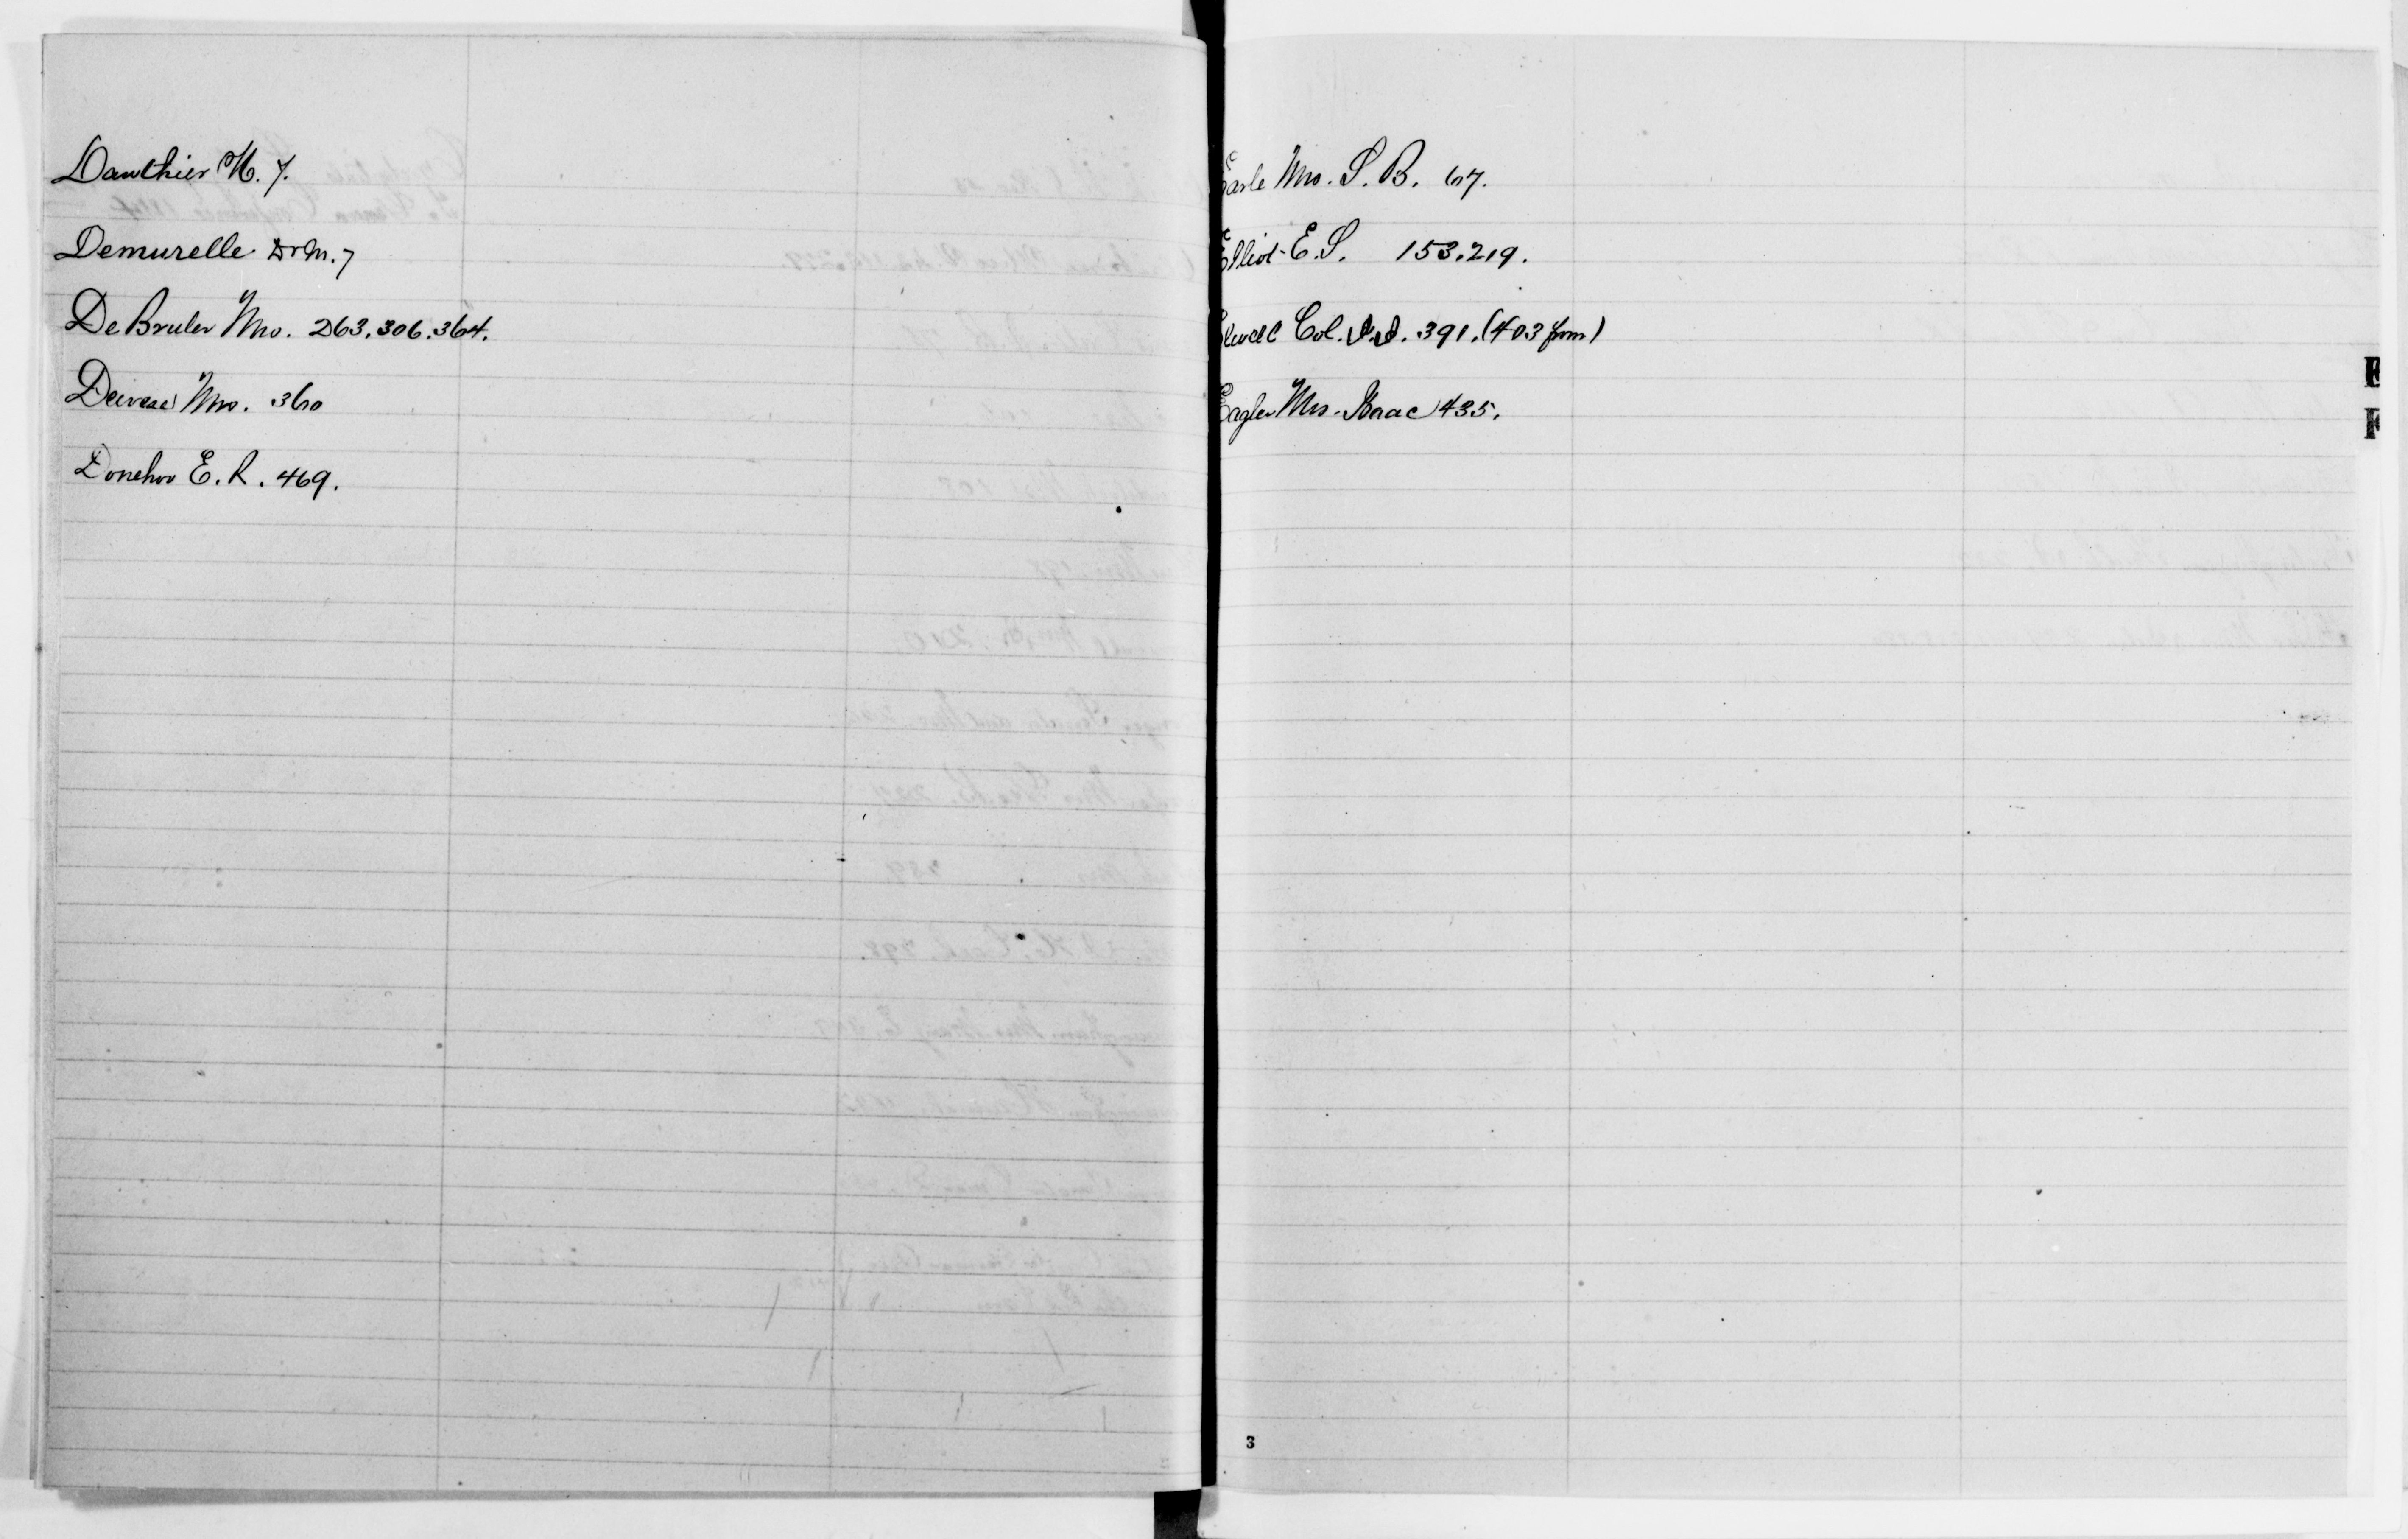 Dawthier H. 7.
Demurelle Dr M. 7
De Bruler Mrs. 263. 306. 364.
Mrs. 360
Donehoo E. R. 469.
Earle Mrs. S. B. 67.
Elliot E. S. 153. 219.
Elwell Col. J. J. 391. (403 from)
Eagler Mrs. Isaac 435.
E
F
3